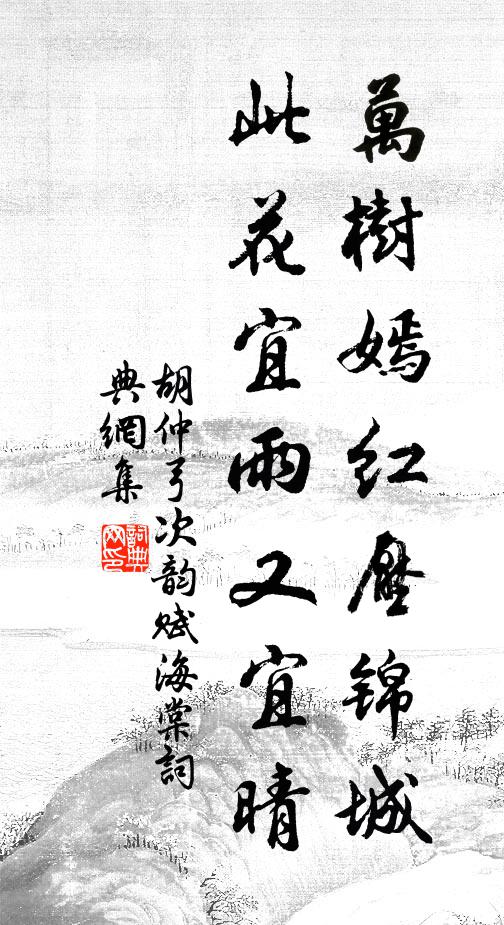 萬樹嫣紅壓錦城
此花宜雨又宜晴
胡仲弓次韵賦海棠詞
典網集
詞典
网印